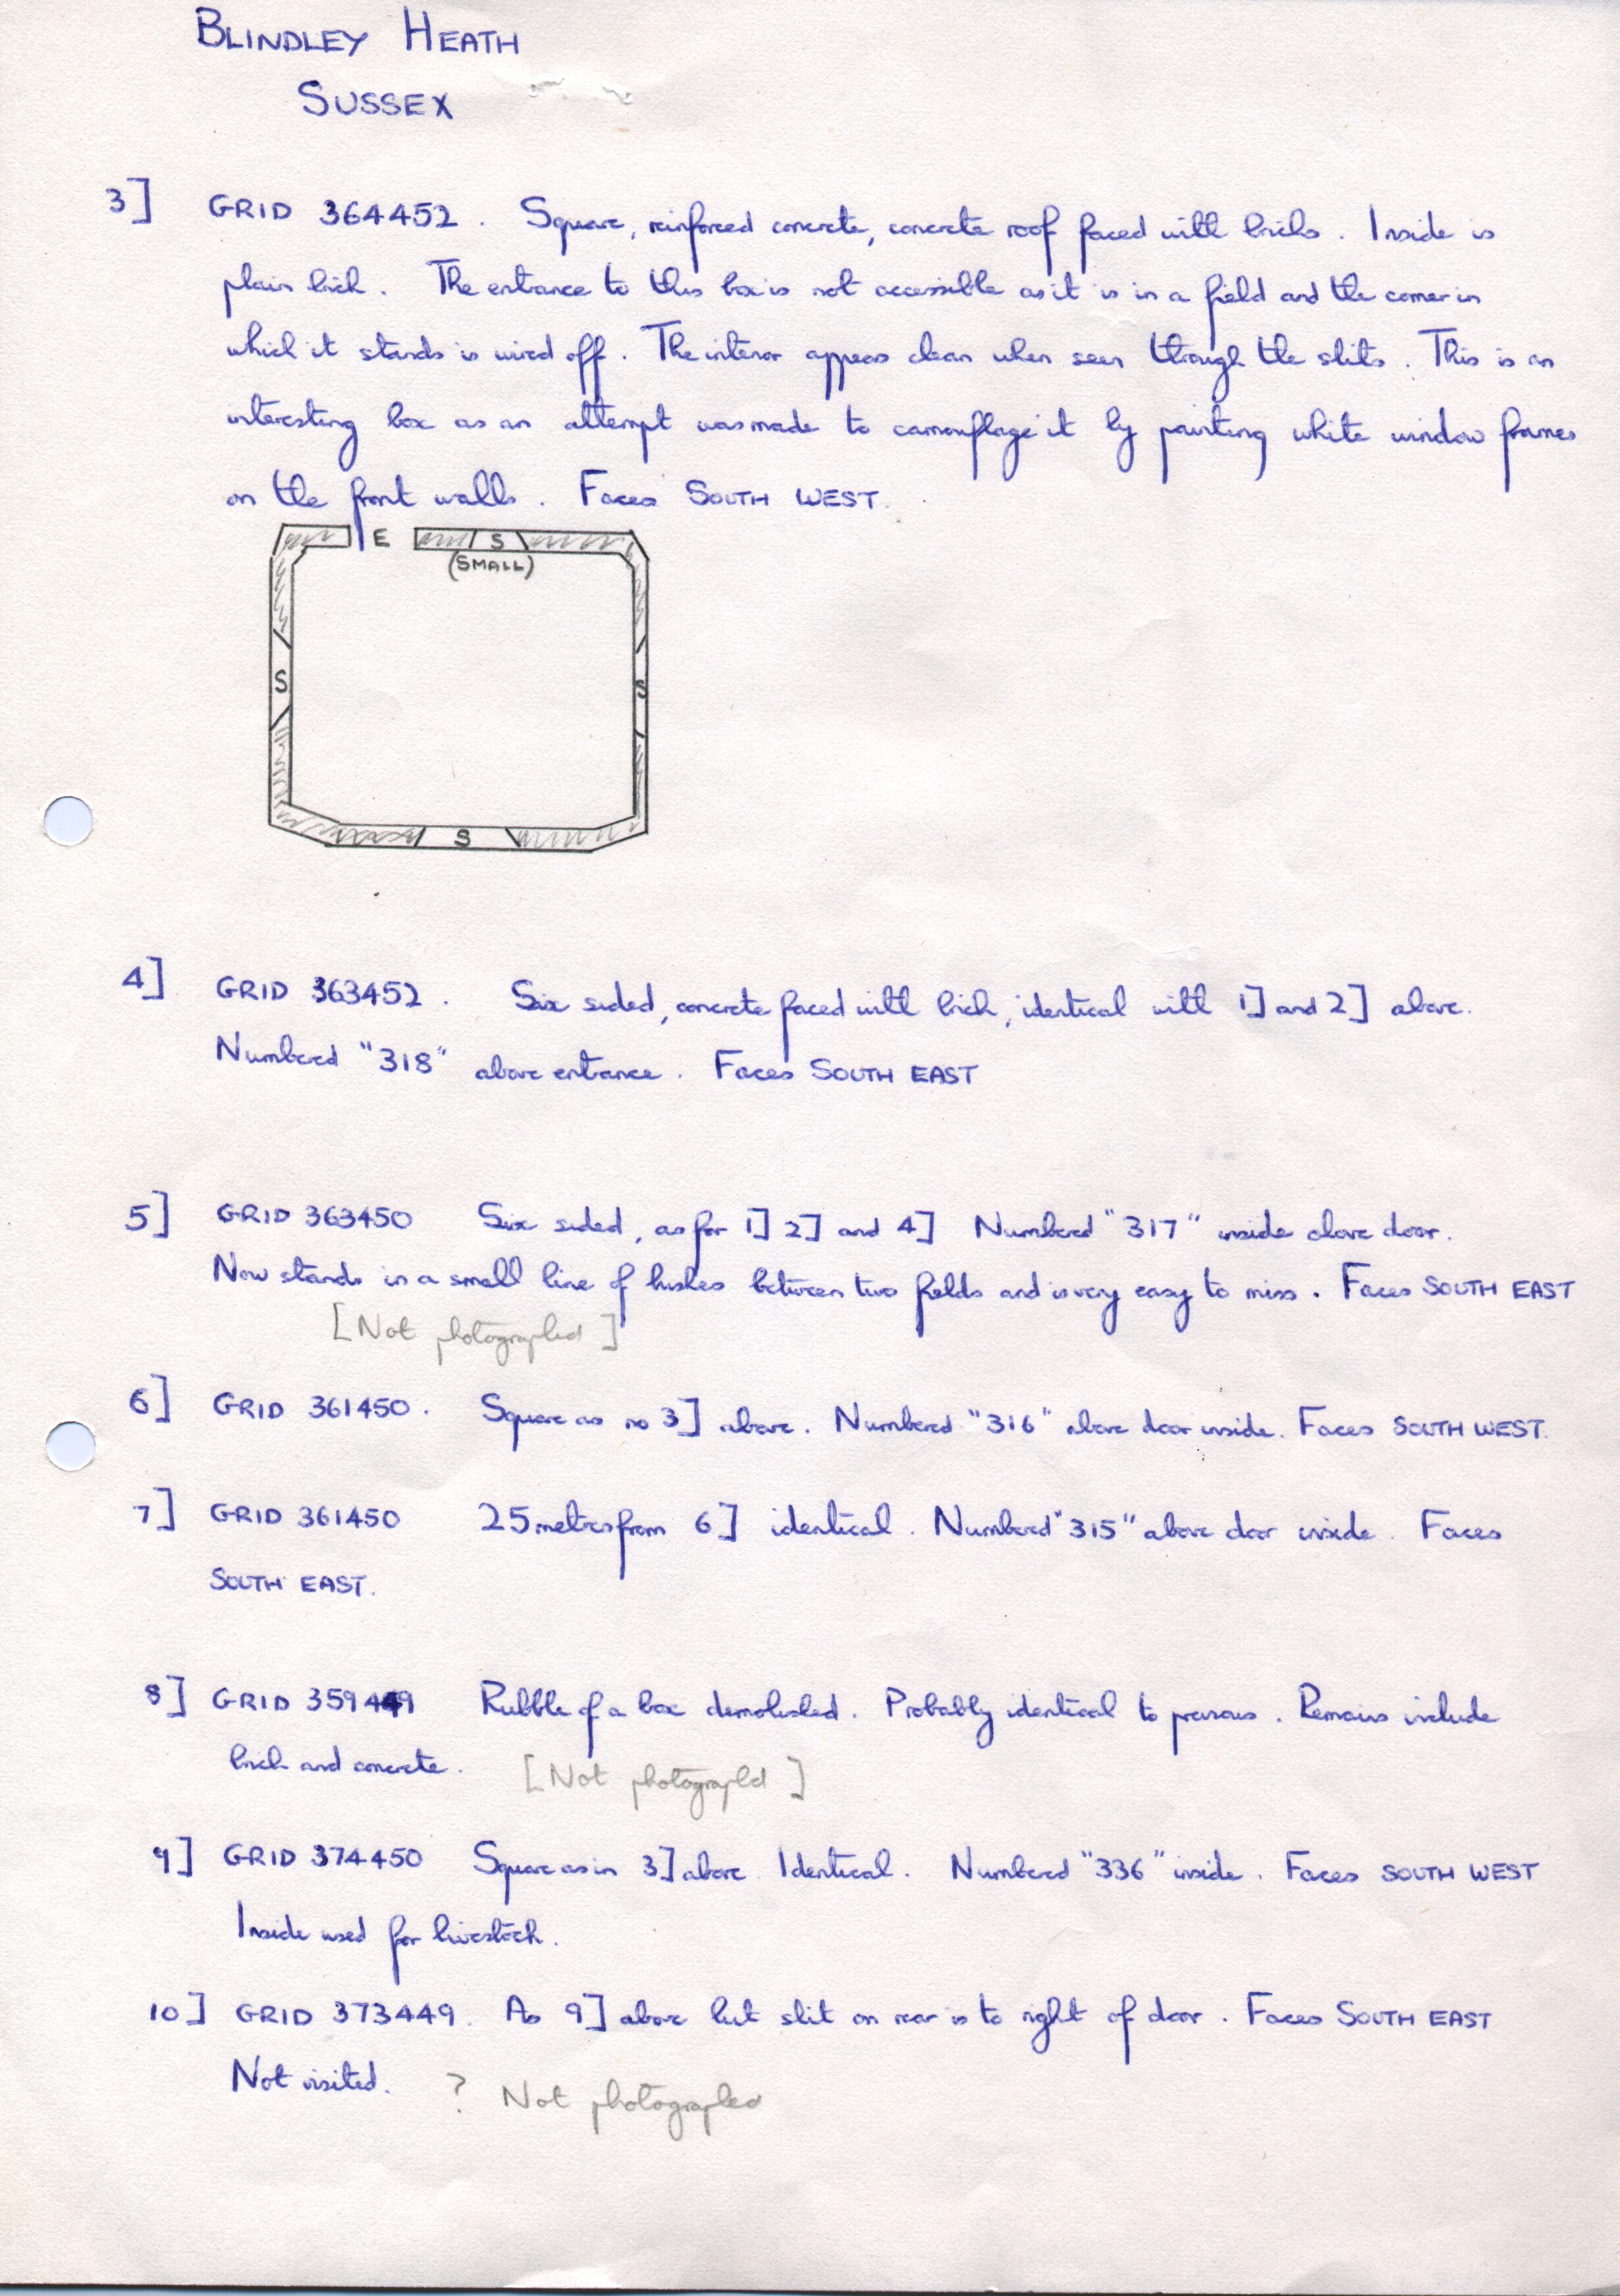 BLINDLEY HEATH
SUSSEX
3] GRID 364452. Square, reinforced concrete, concrete roof faced with bricks. Inside is
plain brick. The entrance to this box is not accessible as it is in a field and the corner in
which it stands is wired off. The interior appears clean when seen through the slits. This is an
interesting box as an attempt was made to camouflage it by painting white window frames
on the front walls. Faces SOUTH WEST.
E S
(SMALL)
S S
S
4] GRID 363452. Six sided, concrete faced with brick, identical with 1] and 2] above.
Numbered "318" above entrance. Faces SOUTH EAST
5] GRID 363450 Six sided, as for 1] 2] and 4] Numbered "317" inside above door.
Now stands in a small line of bushes between two fields and is very easy to miss. Faces SOUTH EAST
[Not photographed]
6] GRID 361450. Square as no 3] above. Numbered "316" above door inside. Faces SOUTH WEST.
7] GRID 361450 25 metres from 6] identical. Numbered "315" above door inside. Faces
SOUTH EAST.
8] GRID 359449 Rubble of a box demolished. Probably identical to previous. Remains include
brick and concrete. [Not photographd]
9] GRID 374450 Square as in 3] above. Identical. Numbered "336" inside. Faces SOUTH WEST
Inside used for livestock.
10] GRID 373449. As 9] above but slit on rear is to right of door. Faces SOUTH EAST
Not visited. ? Not photographed